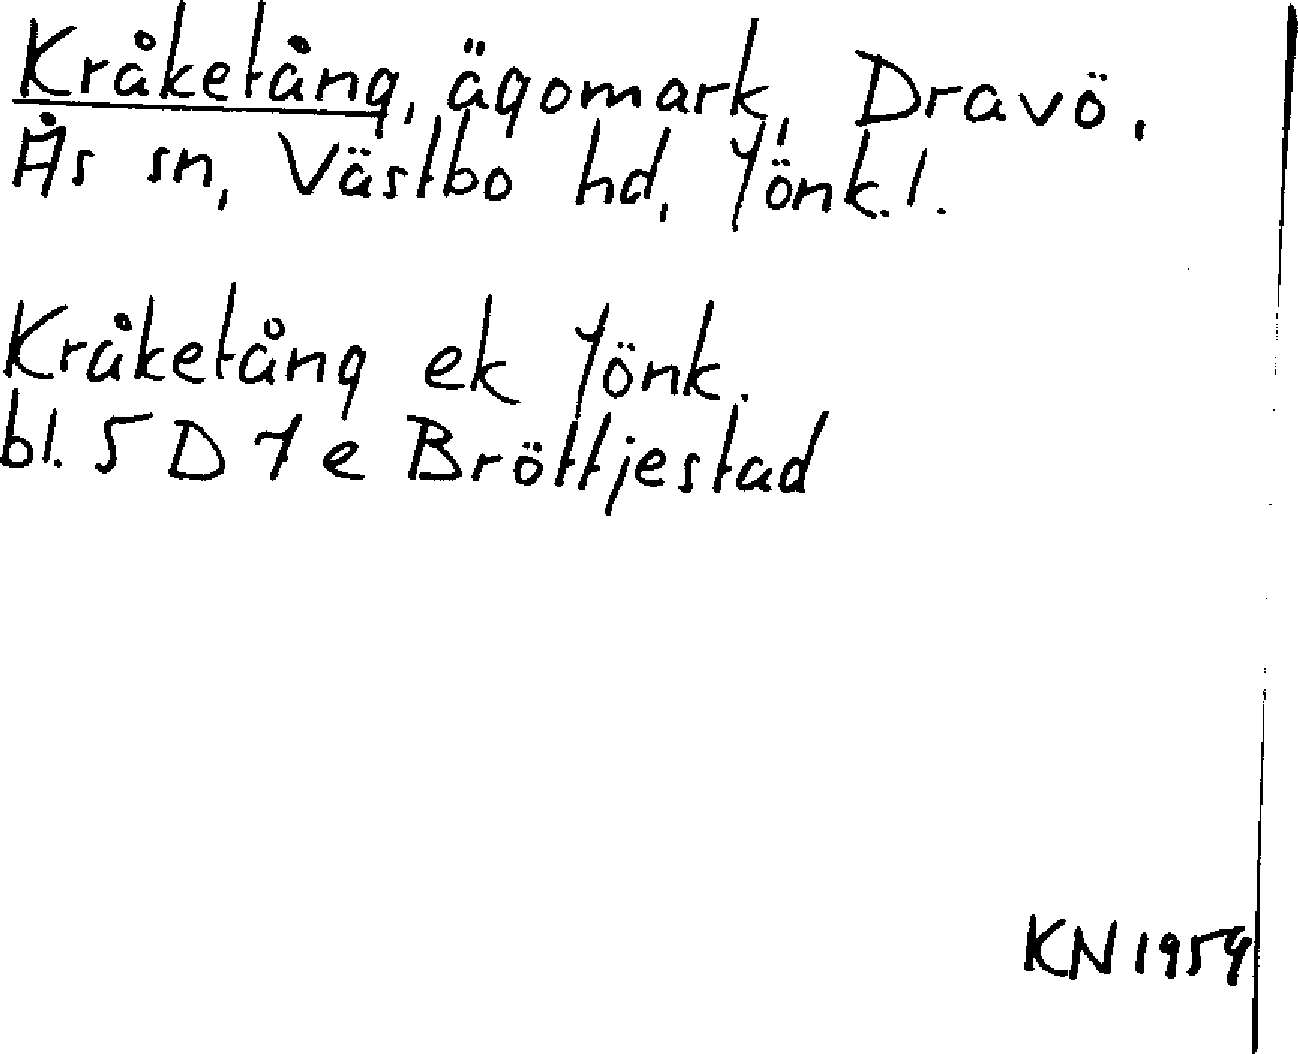 Kråketång, ägomark, Dravö,
Ås sn, Västbo hd, Jönk.l.
Kråketång ek Jönk.
bl. 5 D 7 e Bröttjestad
KN 1959